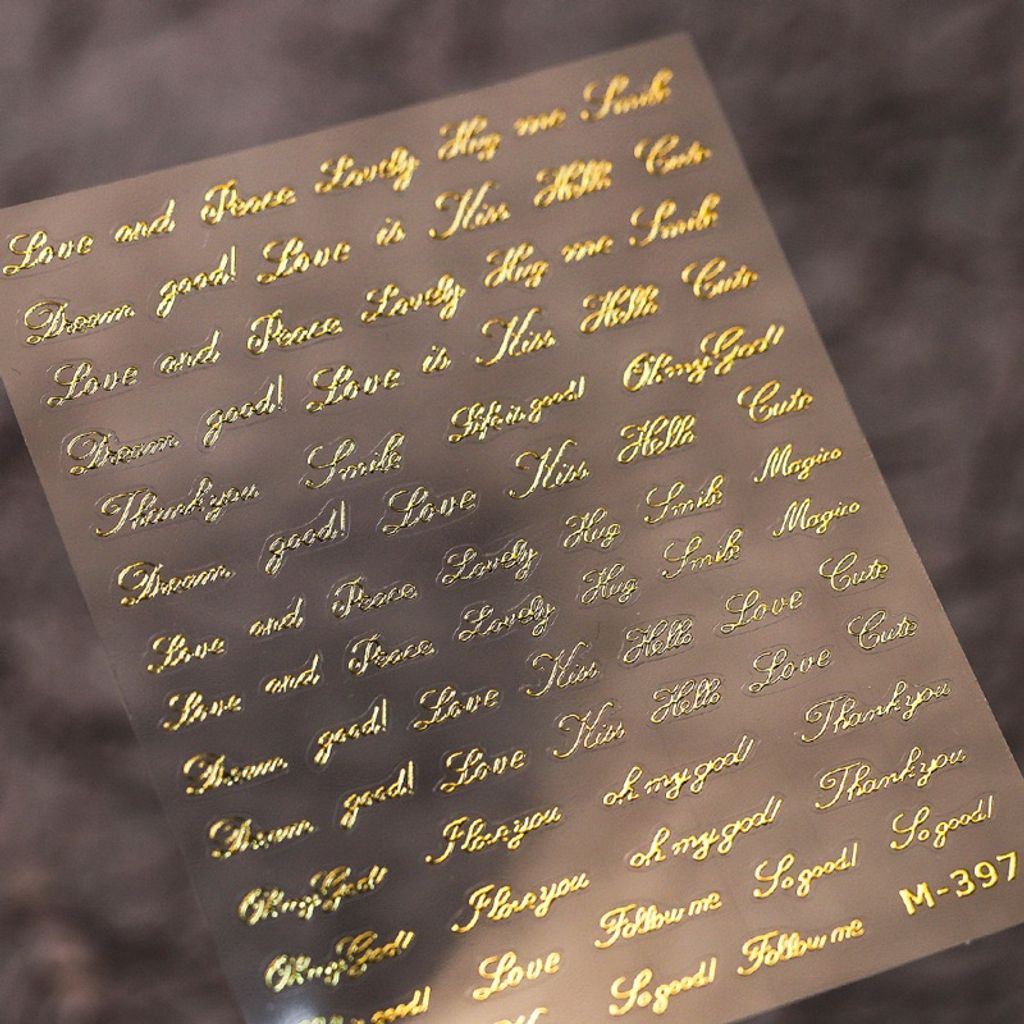 Love and Peace Lovely Hug me Smile
Dream good! Love is Kiss Hello Cute
Love and Peace Lovely Hug me Smile
Dream good! Love is Kiss Hello Cute
Thank you Smile Life is good! Oh my God!
Dream good! Love Kiss Hello Cute
Love and Peace Lovely Hug Smile Magic
Love and Peace Lovely Hug Smile Magic
Dream good! Love Kiss Hello Love Cute
Dream good! Love Kiss Hello Love Cute
Oh my God! I love you oh my god! Thank you
Oh my God! I love you oh my god! Thank you
good! Love Follow me So good! So good!
So good! Follow me
M-397